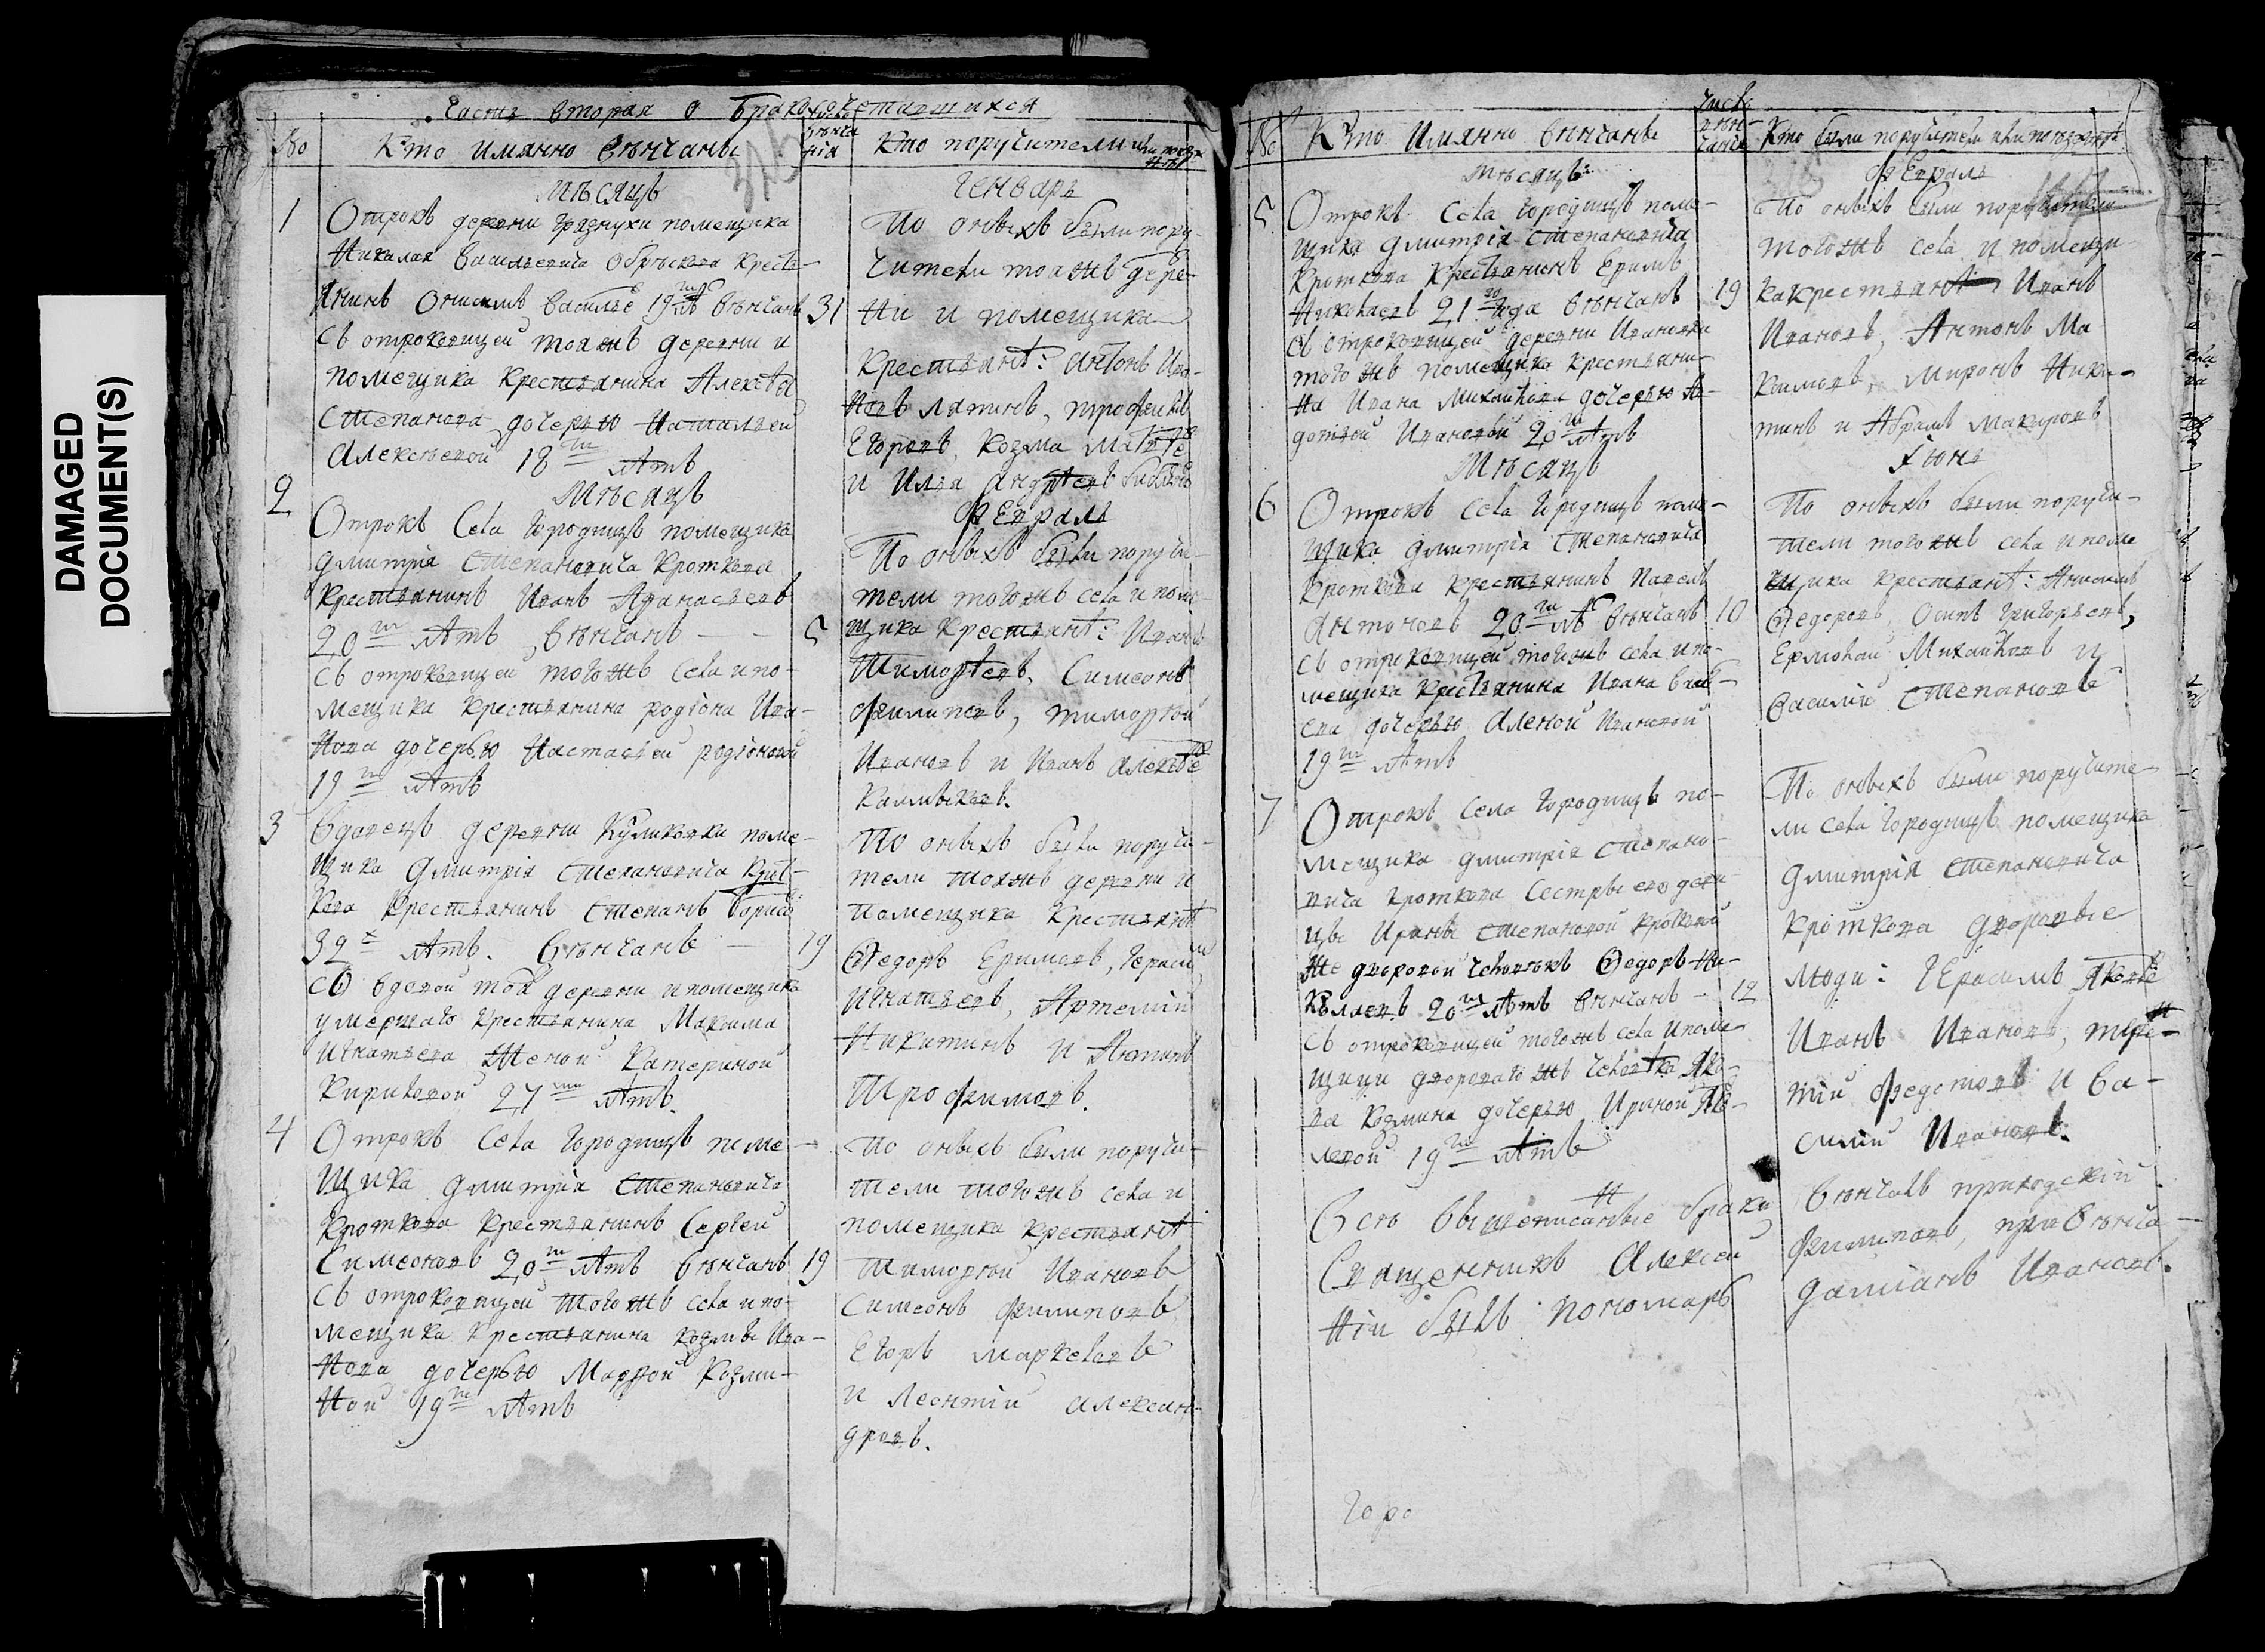 DAMAGED
DOCUMENT(S)
Часть вторая о бракосочетавшихся
№ Кто имянно венчаны
Кто поручители
Месяцъ Генварь
1 Отрокъ деревни Грязнухи помещика
Николая Васильевича Обрѣскова кресть-
янинъ Онисимъ Василье 19 лѣ венчанъ 31
съ отроковицей тояжъ деревни и
помещика крестьянина Алексѣя
Степанова дочерью Натальей
Алексеевой 18 лѣтъ
По оныхъ были пору-
чители тояжъ дере-
вни и помещика
крестьянѣ: Антонъ Ива-
новъ Лятинъ, Трофимъ
Егоровъ, Козма Матвѣе
и Илья Андрѣевъ
Месяцъ Февраль
2 Отрокъ села Городищъ помещика
Дмитрія Степановича Кроткова
крестьянинъ Иванъ Афанасьевъ
20 лѣтъ венчанъ — — 5
съ отроковицей тогожъ села и по-
мещика крестьянина Родіона Ива-
нова дочерью Настасьей Родіоновой
19 лѣтъ
По оныхъ были поручи-
тели тогожъ села и поме-
щика крестьянѣ: Иванъ
Тимофѣевъ, Симеонъ
Филиповъ, Тимофей
Ивановъ и Иванъ Алексѣе
Калмыковъ.
3 Вдовецъ деревни Куликовки поме-
щика Дмитрія Степановича Крот-
кова крестьянинъ Степанъ Борисо
32 лѣтъ. Венчанъ — 19
съ вдовой той деревни и помещика
умершаго крестьянина Максима
Игнатьева женой Катериной
Кириловой 27 лѣтъ.
По оныхъ были поручи-
тели тояжъ деревни и
помещика крестьянѣ
Федоръ Ефимовъ, Гераси
Игнатьевъ, Артемій
Никитинъ и Антипъ
Трофимовъ.
4 Отрокъ села Городищъ поме-
щика Дмитрія Степановича
Кроткова крестьянинъ Сергей
Симеоновъ 20 лѣтъ венчанъ 19
съ отроковицей тогожъ села и по-
мещика крестьянина Козмы Ива-
нова дочерью Марфой Козми-
ной 19 лѣтъ
По оныхъ были поручи-
тели тогожъ села и
помещика крестьянѣ
Тимофей Ивановъ
Симеонъ Филиповъ
Егоръ Маркеловъ
и Леонтій Алексан-
дровъ.
№ Кто имянно венчаны
Кто были поручители
Месяцъ Февраль
5 Отрокъ села Городищъ поме-
щика Дмитрія Степановича
Кроткова крестьянинъ Ефимъ
Николаевъ 21 года венчанъ 19
съ отроковицей деревни Ивановки
того жъ помещика крестьяни-
на Ивана Михайлова дочерью Ав-
дотьей Ивановой 20 лѣтъ
По оныхъ были поручители
тогожъ села и помещи-
ка крестьянѣ Иванъ
Ивановъ, Антонъ Ма
каимовъ, Миронъ Ники-
тинъ и Абрамъ Макаровъ
Месяцъ Іюнь
6 Отрокъ села Городищъ поме-
щика Дмитрія Степановича
Кроткова крестьянинъ Павелъ
Антоновъ 20 лѣ венчанъ 10
съ отроковицей тогожъ села и по-
мещика крестьянина Ивана
ева дочерью Аленой Ивановой
19 лѣтъ
По оныхъ были поручи-
тели тогожъ села и поме
щика крестьянѣ: Анисимъ
Федоровъ, Осипъ Григорьевъ,
Ермолай Михайловъ и
Василій Степановъ
7 Отрокъ села Городищъ по-
мещика Дмитрія Степано-
вича Кроткова сестры его деви-
цы Ирины Степановой Кротковой
же дворовой человекъ Федоръ Ни-
колаевъ 20 лѣтъ венчанъ — 12
съ отроковицей тогожъ села и поме-
щицы двороваго жъ человѣка Яко-
ва Козмина дочерью Ириной Яко-
влевой 19 лѣтъ
По оныхъ были поручите-
ли села Городищъ помещика
Дмитрія Степановича
Кроткова дворовые
люди: Герасимъ Яковле
Иванъ Ивановъ, Терен-
тій Федотовъ и Ва-
силій Ивановъ.
Всѣ вышеписанные браки венчалъ приходскій
Священникъ Алексей Филиповъ, при венча-
ніи былъ пономарь Даміанъ Ивановъ.
Горо